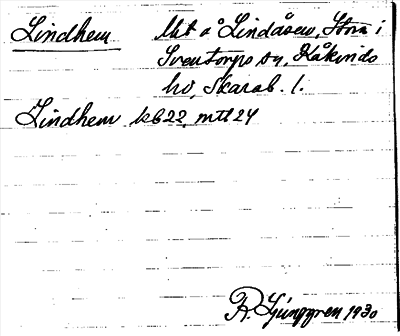 Lindhem Utt å Lindåsen, Stora i
Sventorps sn, Kåkinds
hd, Skarab. l.
Lindhem kb22, mtl 24
R. Ljunggren 1930